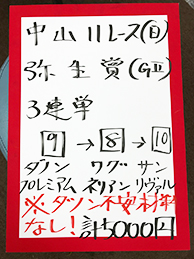 中山11レース(日)
弥生賞(GⅡ)
3連単
9→8→10
ダノン ワグ サン
プロレミアム ネリアン リヴァル
※ダノン不安材料
なし!計5000円